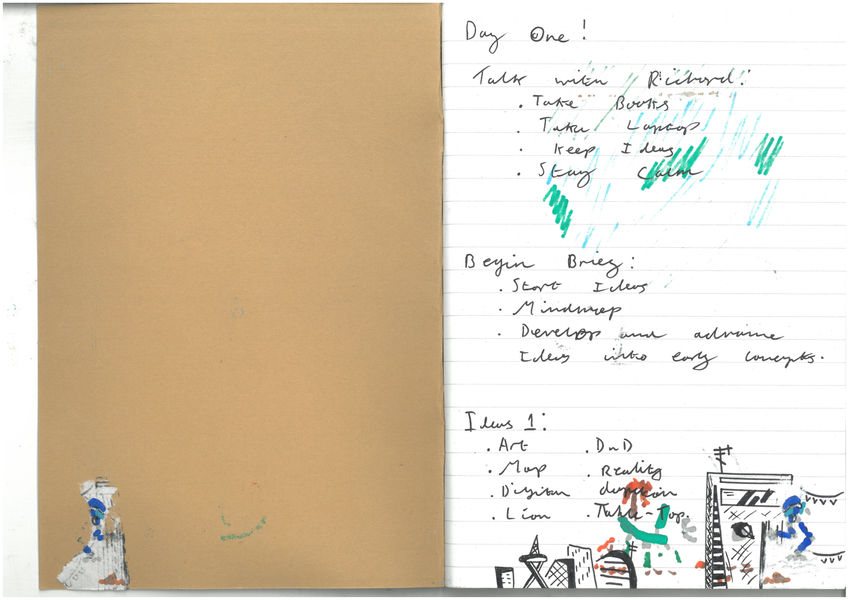 Day One!
Talk with Richard:
. Take Books
. Take Laptop
. Keep Ideas
. Stay Calm
Begin Brief:
. Start Ideas
. Mindmap
. Develop and advance
Ideas into early concepts.
Ideas 1:
. Art
. Map
. Digital
. Lion
. DnD
. Reality
dungeon
. Table-Top.